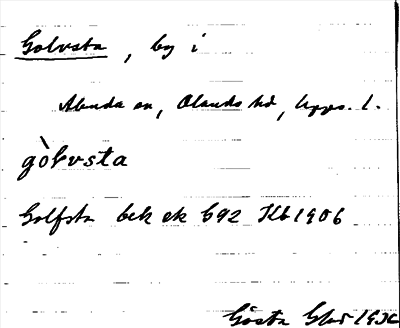 Golvsta, by i
Alunda sn, Olands hd, Upps. l.
gòlvsta
Golfsta bek ek 692 Kb 1906
Gösta